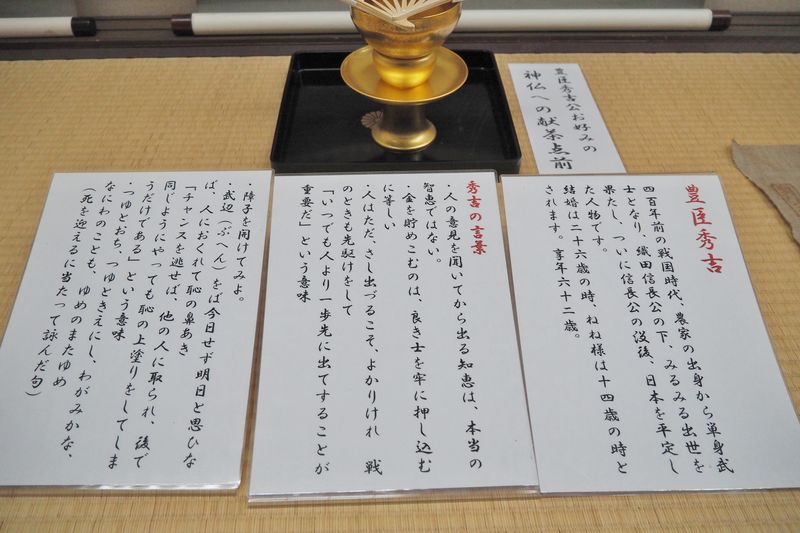 豊臣秀吉公お好みの
神仏への献茶点前
豊臣秀吉
四百年前の戦国時代、農家の出身から単身武
士となり、織田信長公の下、みるみる出世を
果たし、ついに信長公の没後、日本を平定し
た人物です。
結婚は二十六歳の時、ねね様は十四歳の時と
されます。享年六十二歳。
秀吉の言葉
・人の意見を聞いてから出る知恵は、本当の
智恵ではない。
・金を貯めこむのは、良き士を牢に押し込む
に等しい
・人はただ、さし出づるこそ、よかりけれ　戦
のときも先駆けをして
「いつでも人より一歩先に出てすることが
重要だ」という意味
・障子を開けてみよ。
・武辺（ぶへん）をば今日せず明日と思ひな
ば、人におくれて恥の鼻あき
「チャンスを逃せば、他の人に取られ、後で
同じようにやっても恥の上塗りをしてしま
うだけである」という意味
・つゆとおち、つゆときえにし、わがみかな、
なにわのことも、ゆめのまたゆめ
（死を迎えるに当たって詠んだ句）